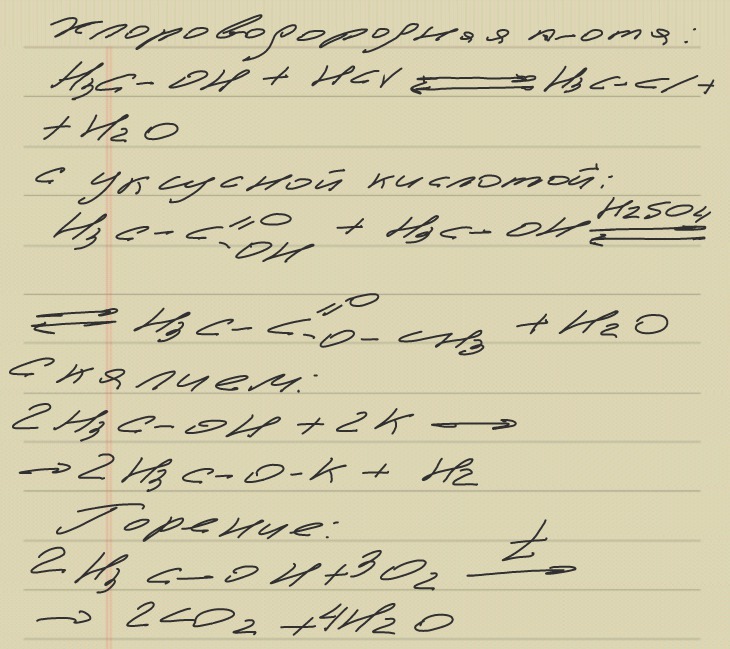 Хлороводородная к-ота:
H₃C-OH + HCl ⇄ H₃C-Cl +
+ H₂O
С уксусной кислотой:
H₃C-C(=O)-OH + H₃C-OH ⇄ (H₂SO₄)
⇄ H₃C-C(=O)-O-CH₃ + H₂O
С калием:
2H₃C-OH + 2K →
→ 2H₃C-O-K + H₂
Горение:
2H₃C-OH + 3O₂ →t
→ 2CO₂ + 4H₂O